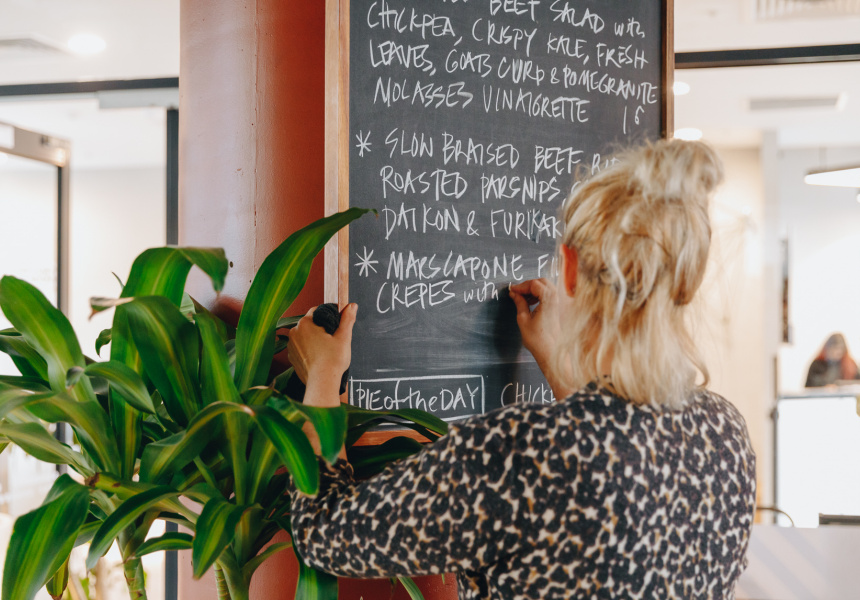 BEEF SALAD with
CHICKPEA, CRISPY KALE, FRESH
LEAVES, GOATS CURD & POMEGRANITE
MOLASSES VINAIGRETTE
16
* SLOW BRAISED BEEF
ROASTED PARSNIPS,
DAIKON & FURIKAK
* MARSCAPONE F
CREPES with
PIE of the DAY CHICK